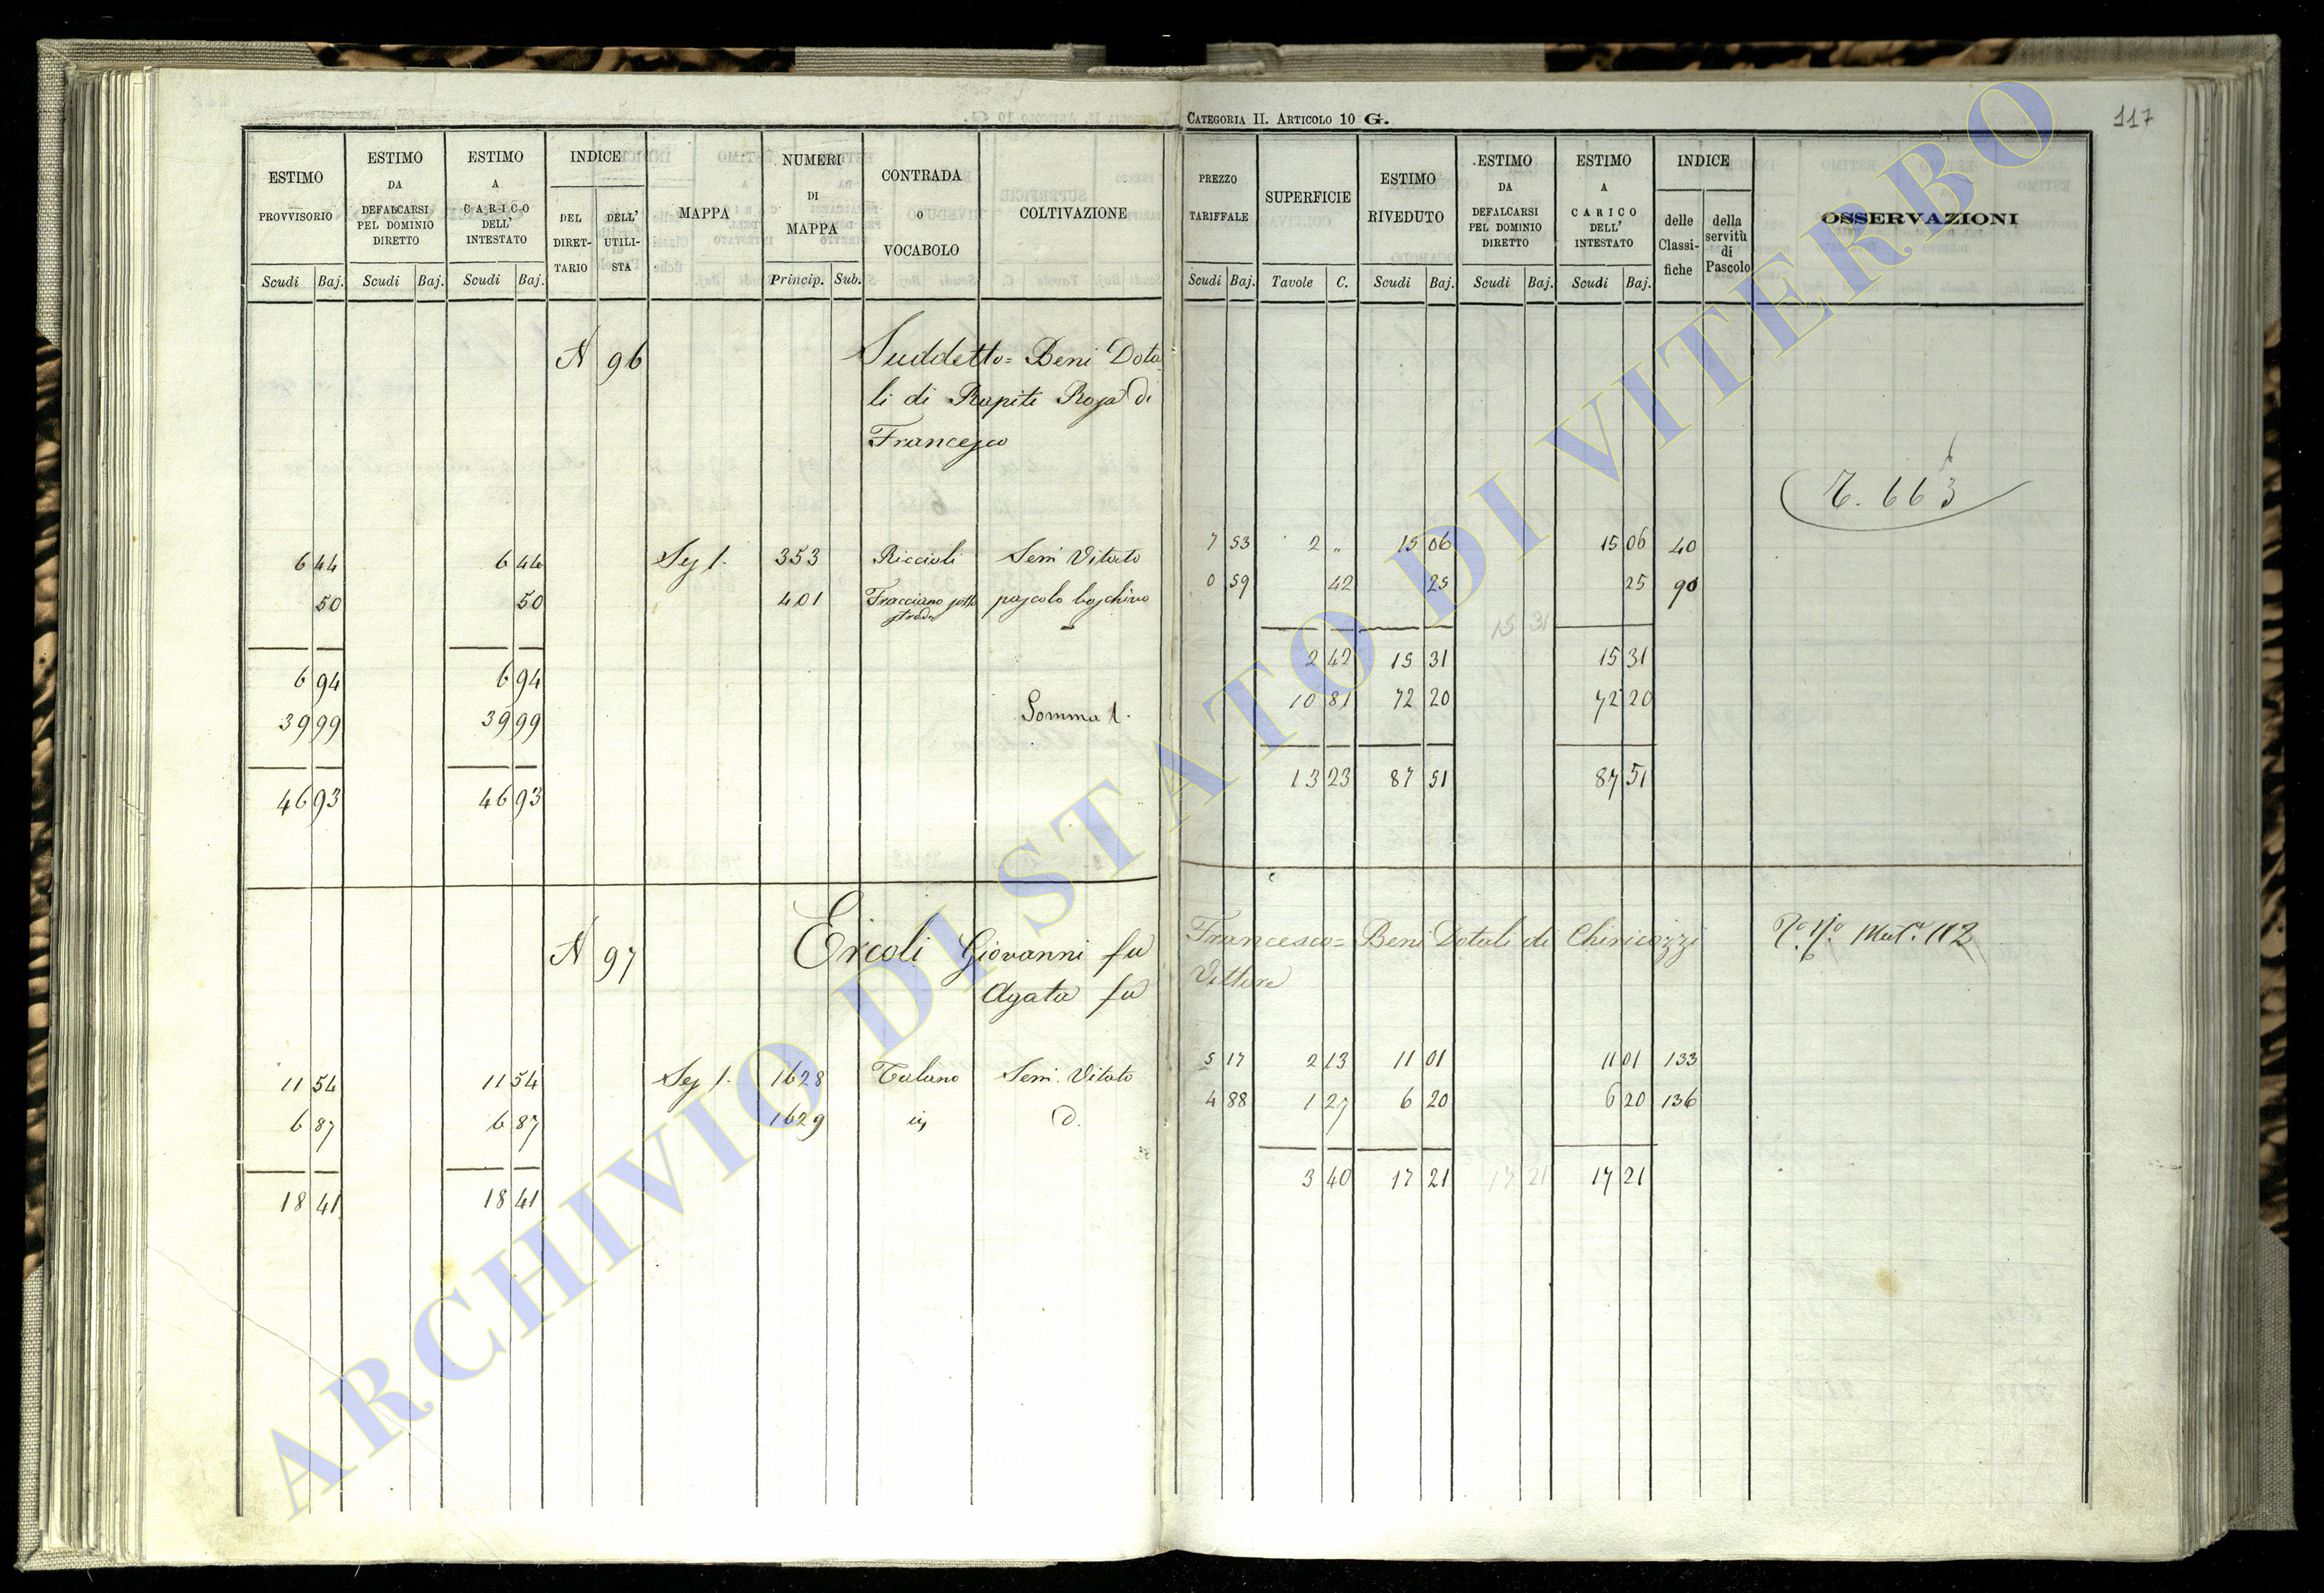 CATEGORIA II. ARTICOLO 10 G.
117
ESTIMO PROVVISORIO
ESTIMO DA DEFALCARSI PEL DOMINIO DIRETTO
ESTIMO A CARICO DELL' INTESTATO
INDICE
DEL DIRET-TARIO
DELL' UTILI-STA
MAPPA
NUMERI DI MAPPA
CONTRADA O VOCABOLO
COLTIVAZIONE
PREZZO TARIFFALE
SUPERFICIE
ESTIMO RIVEDUTO
ESTIMO DA DEFALCARSI PEL DOMINIO DIRETTO
ESTIMO A CARICO DELL' INTESTATO
INDICE
delle Classi-fiche
della servitù di Pascolo
OSSERVAZIONI
Scudi Baj. Scudi Baj. Scudi Baj. Princip. Sub. Scudi Baj. Tavole C. Scudi Baj. Scudi Baj. Scudi Baj.
N 96 Suddetto= Beni Dota
li di Rapiti Rosa di
Francesco
663
6 44 6 44 Sez 1. 353 Riccioli Sem Vitato 7 53 2 „ 15 06 15 06 40
50 50 401 Fracciano sotto strada pascolo boschivo 0 59 42 25 25 90
15 31
6 94 6 94 2 42 15 31 15 31
39 99 39 99 Somma 1. 10 81 72 20 72 20
46 93 46 93 13 23 87 51 87 51
N 97 Ercoli Giovanni fu Francesco= Beni Dotali di Chiricozzi
Agata fu Vittore
112
11 54 11 54 Sez 1. 1628 Talano Sem. Vitato 5 17 2 13 11 01 11 01 133
6 87 6 87 1629 D. 4 88 1 27 6 20 6 20 136
18 41 18 41 3 40 17 21 17 21 17 21
ARCHIVIO DI STATO DI VITERBO